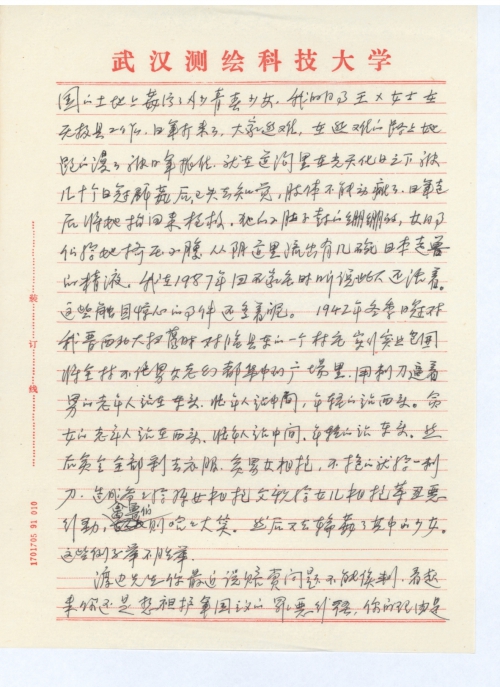 武汉测绘科技大学
国的土地上蹂多少青春少女。我的明了王×女士女
县工作。日军打来了,大家逃难,在逃难的路上她
跑的漫了被日军抓住,就在道沟里在光天化日之下被
几十个日寇群奸后已失去知觉,肢体不能动了。日军走
后将她抬回来抢救,她的肚子鼓的绷绷的,女同
们给她挤压小腹,从阴道里流出有几碗日本
的精液。我在1987年回家时听说此人还活着。
这些触目惊心的事件还多着呢。1942年冬季日寇对
我晋西北大扫荡时对临县东的一个村庄实行包围
将全村不论男女老幼都集中的广场里,用刺刀逼着
男的老年人站在东头,壮年人站中间,年轻的站西头。
女的老年人站在西头,壮年人站中间,年轻的站东头。然
后全部剥去衣服,男女相抱,不抱的就给一刺
刀。造成爷爷给孙女相抱父亲给女儿相抱等丑恶
行动,则哈哈大笑。然后不去轮奸了其中的少女。
这些例子举不胜举。
渡边先生你最近说赔赏问题不能谈判,看起
来你还是想袒护军国主义的罪恶行径,你的理由是
装 订 线
1701705 91 010